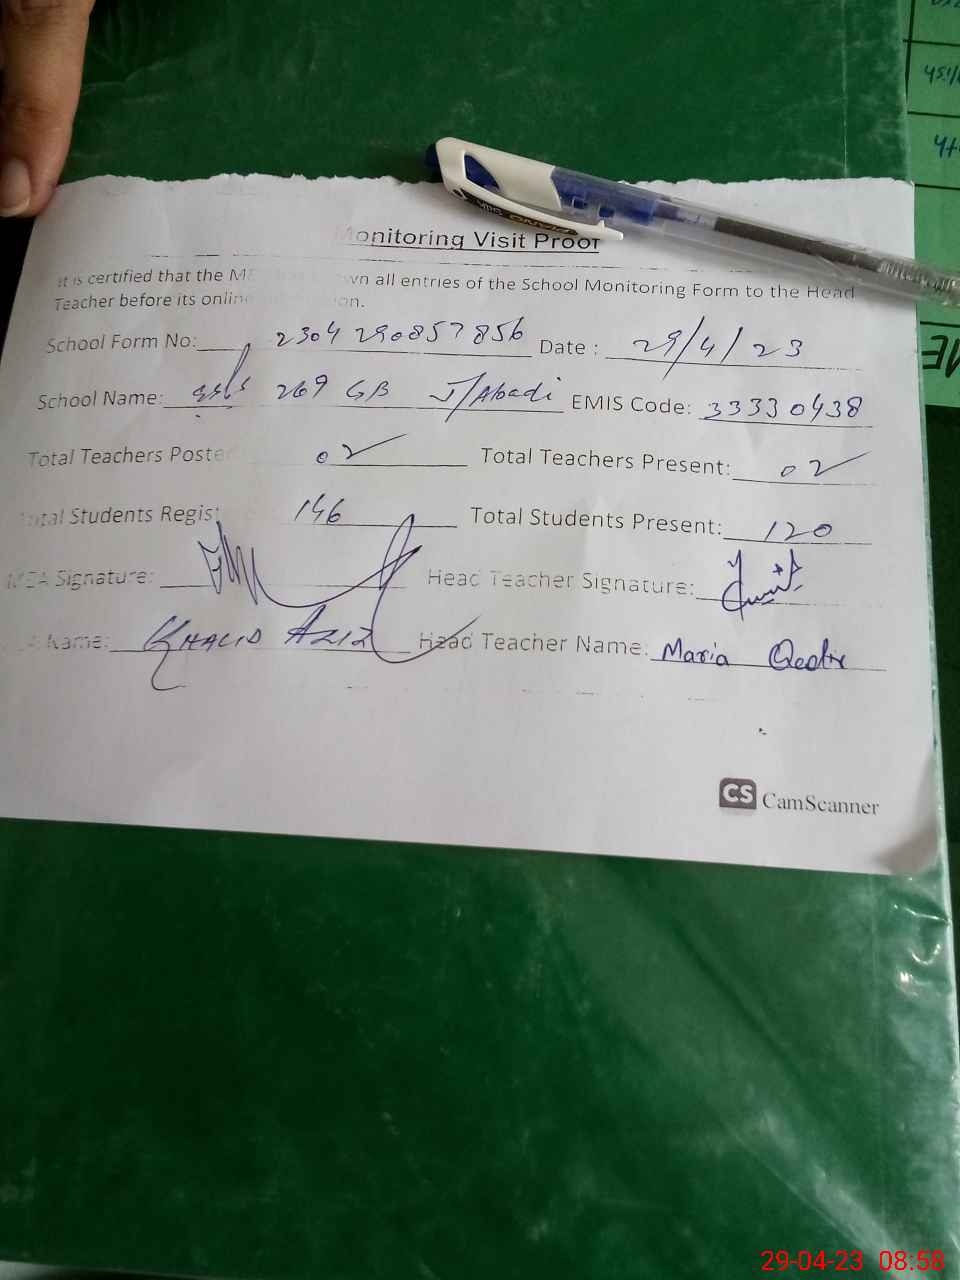 Monitoring Visit Proof
It is certified that the ME wn all entries of the School Monitoring Form to the Head
Teacher before its online on.
School Form No: 2304 290857856 Date : 29/4/23
School Name: 269 GB J/Abadi EMIS Code: 33330438
Total Teachers Poste 02 Total Teachers Present: 02
Total Students Regist 146 Total Students Present: 120
MEA Signature: Head Teacher Signature:
Name: KHALID AZIZ Head Teacher Name: Maria Qadir
CS CamScanner
29-04-23 08:58